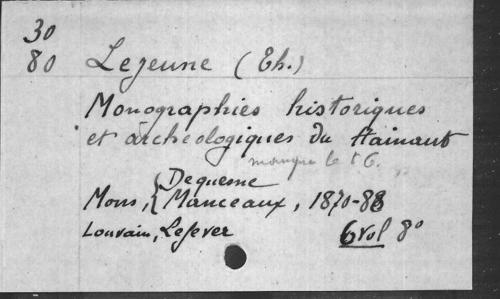 30
80 Lejeune (Th.)
Monographies historiques
et archéologiques du Hainaut
manque le t 6.
Mons, { Dequesne
Manceaux, 1870-88
Louvain, Lefever 6 vol 8°